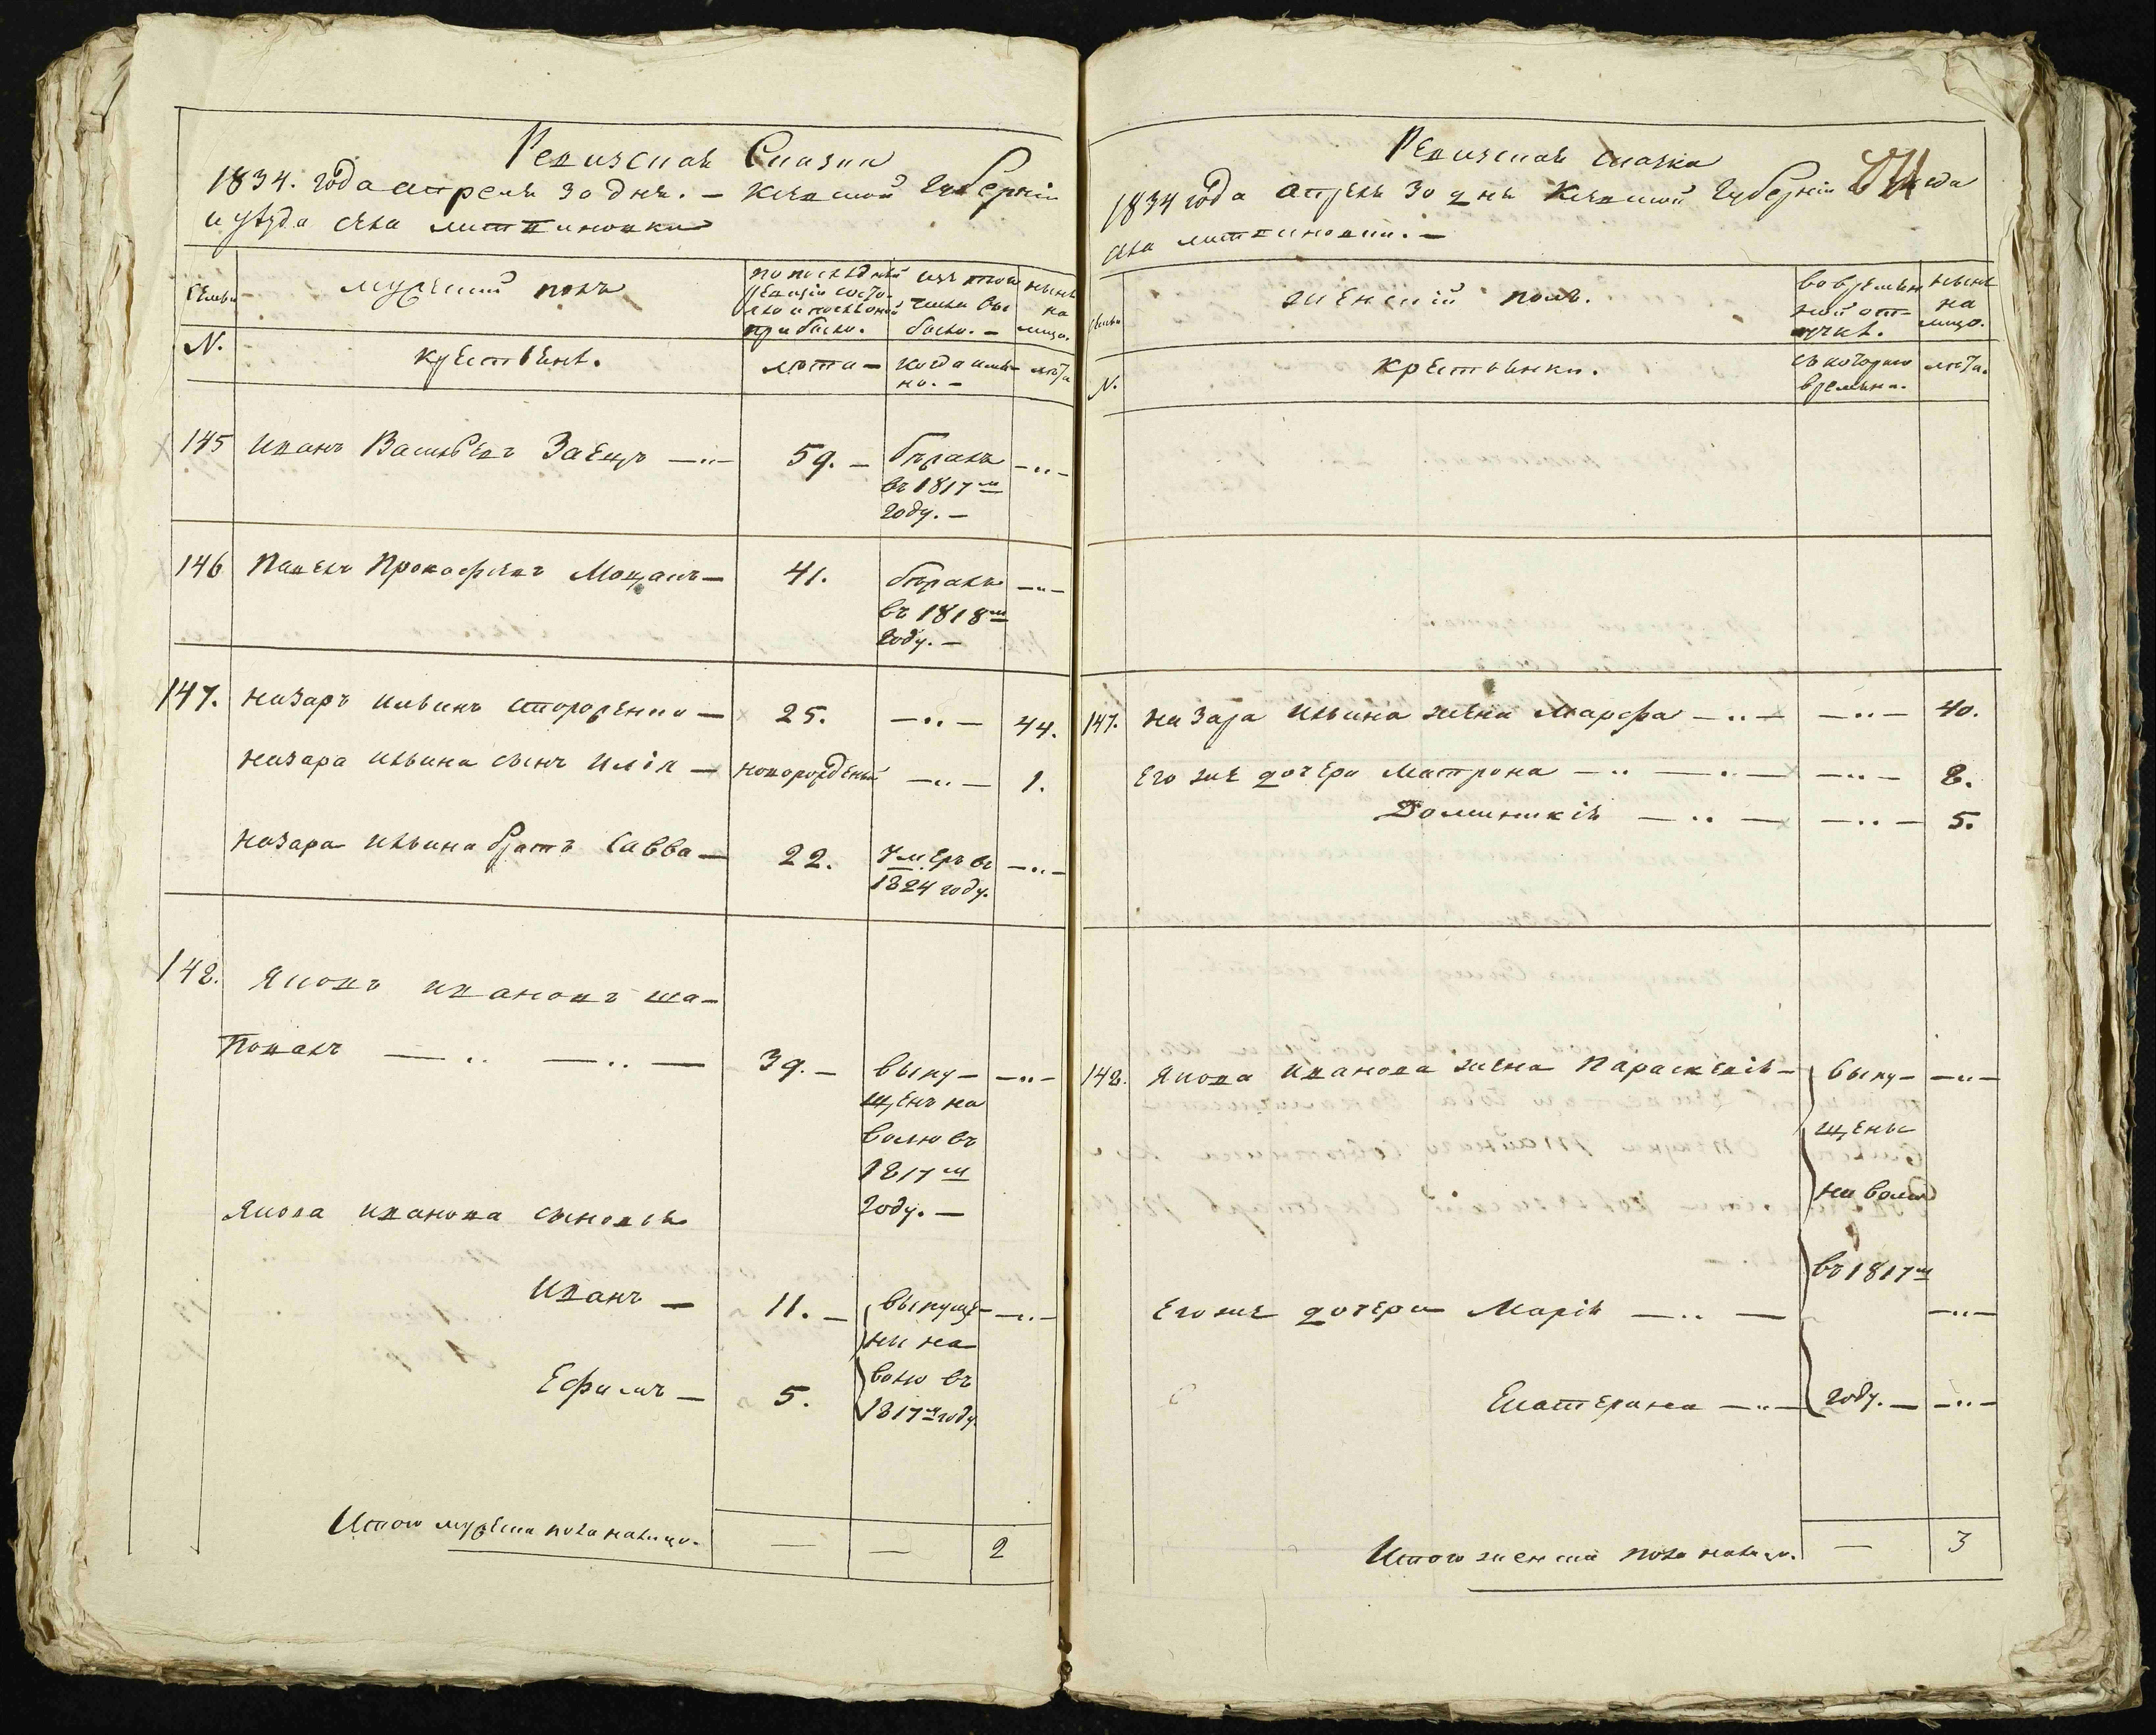 Ревизская Сказка
1834. года апреля 30 дня. — Киевской Губернии
и уѣзда села Литвиновки
Семьи
мужеский полъ
по последней
ревизіи состо-
яло и после оной
прибыло.
изъ того
числа вы
было. —
нынѣ
на
лицо.
N.
крестьяне.
лѣта —
когда имян-
но. —
лѣта
145 Иванъ Васильевъ Заецъ —„— 59. — бѣжалъ —„—
въ 1817м
году. —
146 Павелъ Прокофьевъ — 41. бѣжалъ —„—
въ 1818м
году. —
147. Назаръ Ильинъ Стороженко — 25. —„— 44.
Назара Ильина сынъ Илія — новорожденый —„— 1.
Назара Ильина братъ Савва — 22. умеръ въ —„—
1824 году.
148. Яковъ Ивановъ Ша-
повалъ —„— —„— 39. — выпу- —„—
щенъ на
волю въ
1817м
году. —
Якова Иванова сыновья
Иванъ — 11. — выпуще- —„—
ны на
Ефимъ — 5. волю въ
1817м году
Итого мужеска пола налицо. — — 2
Ревизская сказка
1834 года апреля 30 дня Киевской Губернии уезда
села Литвиновки. —
Семьи
женский полъ.
во времен-
ной от-
лучке.
нынѣ
на
лицо.
N.
крестьянки.
съ которого
времени.
лѣта.
147. Назара Ильина жена Марфа —„— —„— 40.
Его же дочери Матрона —„— —„— —„— 8.
Доминикія —„— —„— 5.
148. Якова Иванова жена Параскевія — выпу- —„—
щены
на волю
въ 1817м
Его же дочери Марія —„— —„—
Екатерина —„— году. — —„—
Итого женска пола налицо. — 3